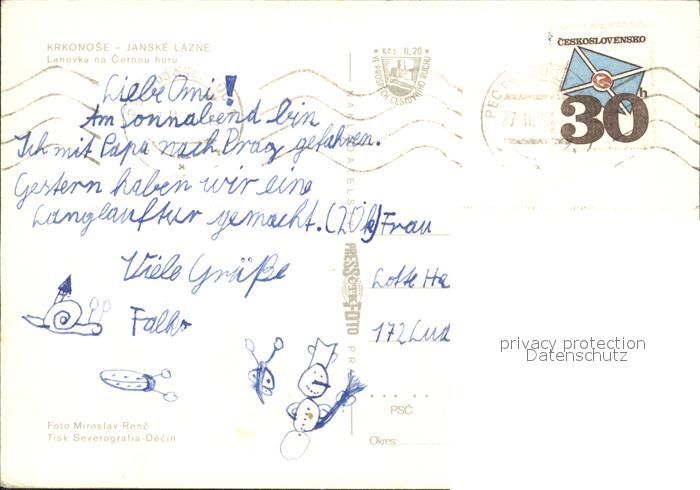 KRKONOŠE – JANSKÉ LÁZNĚ
Lanovka na Černou horu
Kčs 0,20
VE PROSPĚCH CESTOVNÍHO RUCHU
ČESKOSLOVENSKO
30h
Liebe Omi!
Am Sonnabend bin
Ich mit Papa nach Prag gefahren.
Gestern haben wir eine
Langlauftur gemacht. (20k)
Viele Grüße
Falko
Frau
Lotte Ha
172 Lud
PRESSFOTO
privacy protection
Datenschutz
PSČ
Okres:
Foto Miroslav Renč
Tisk Severografia Děčín